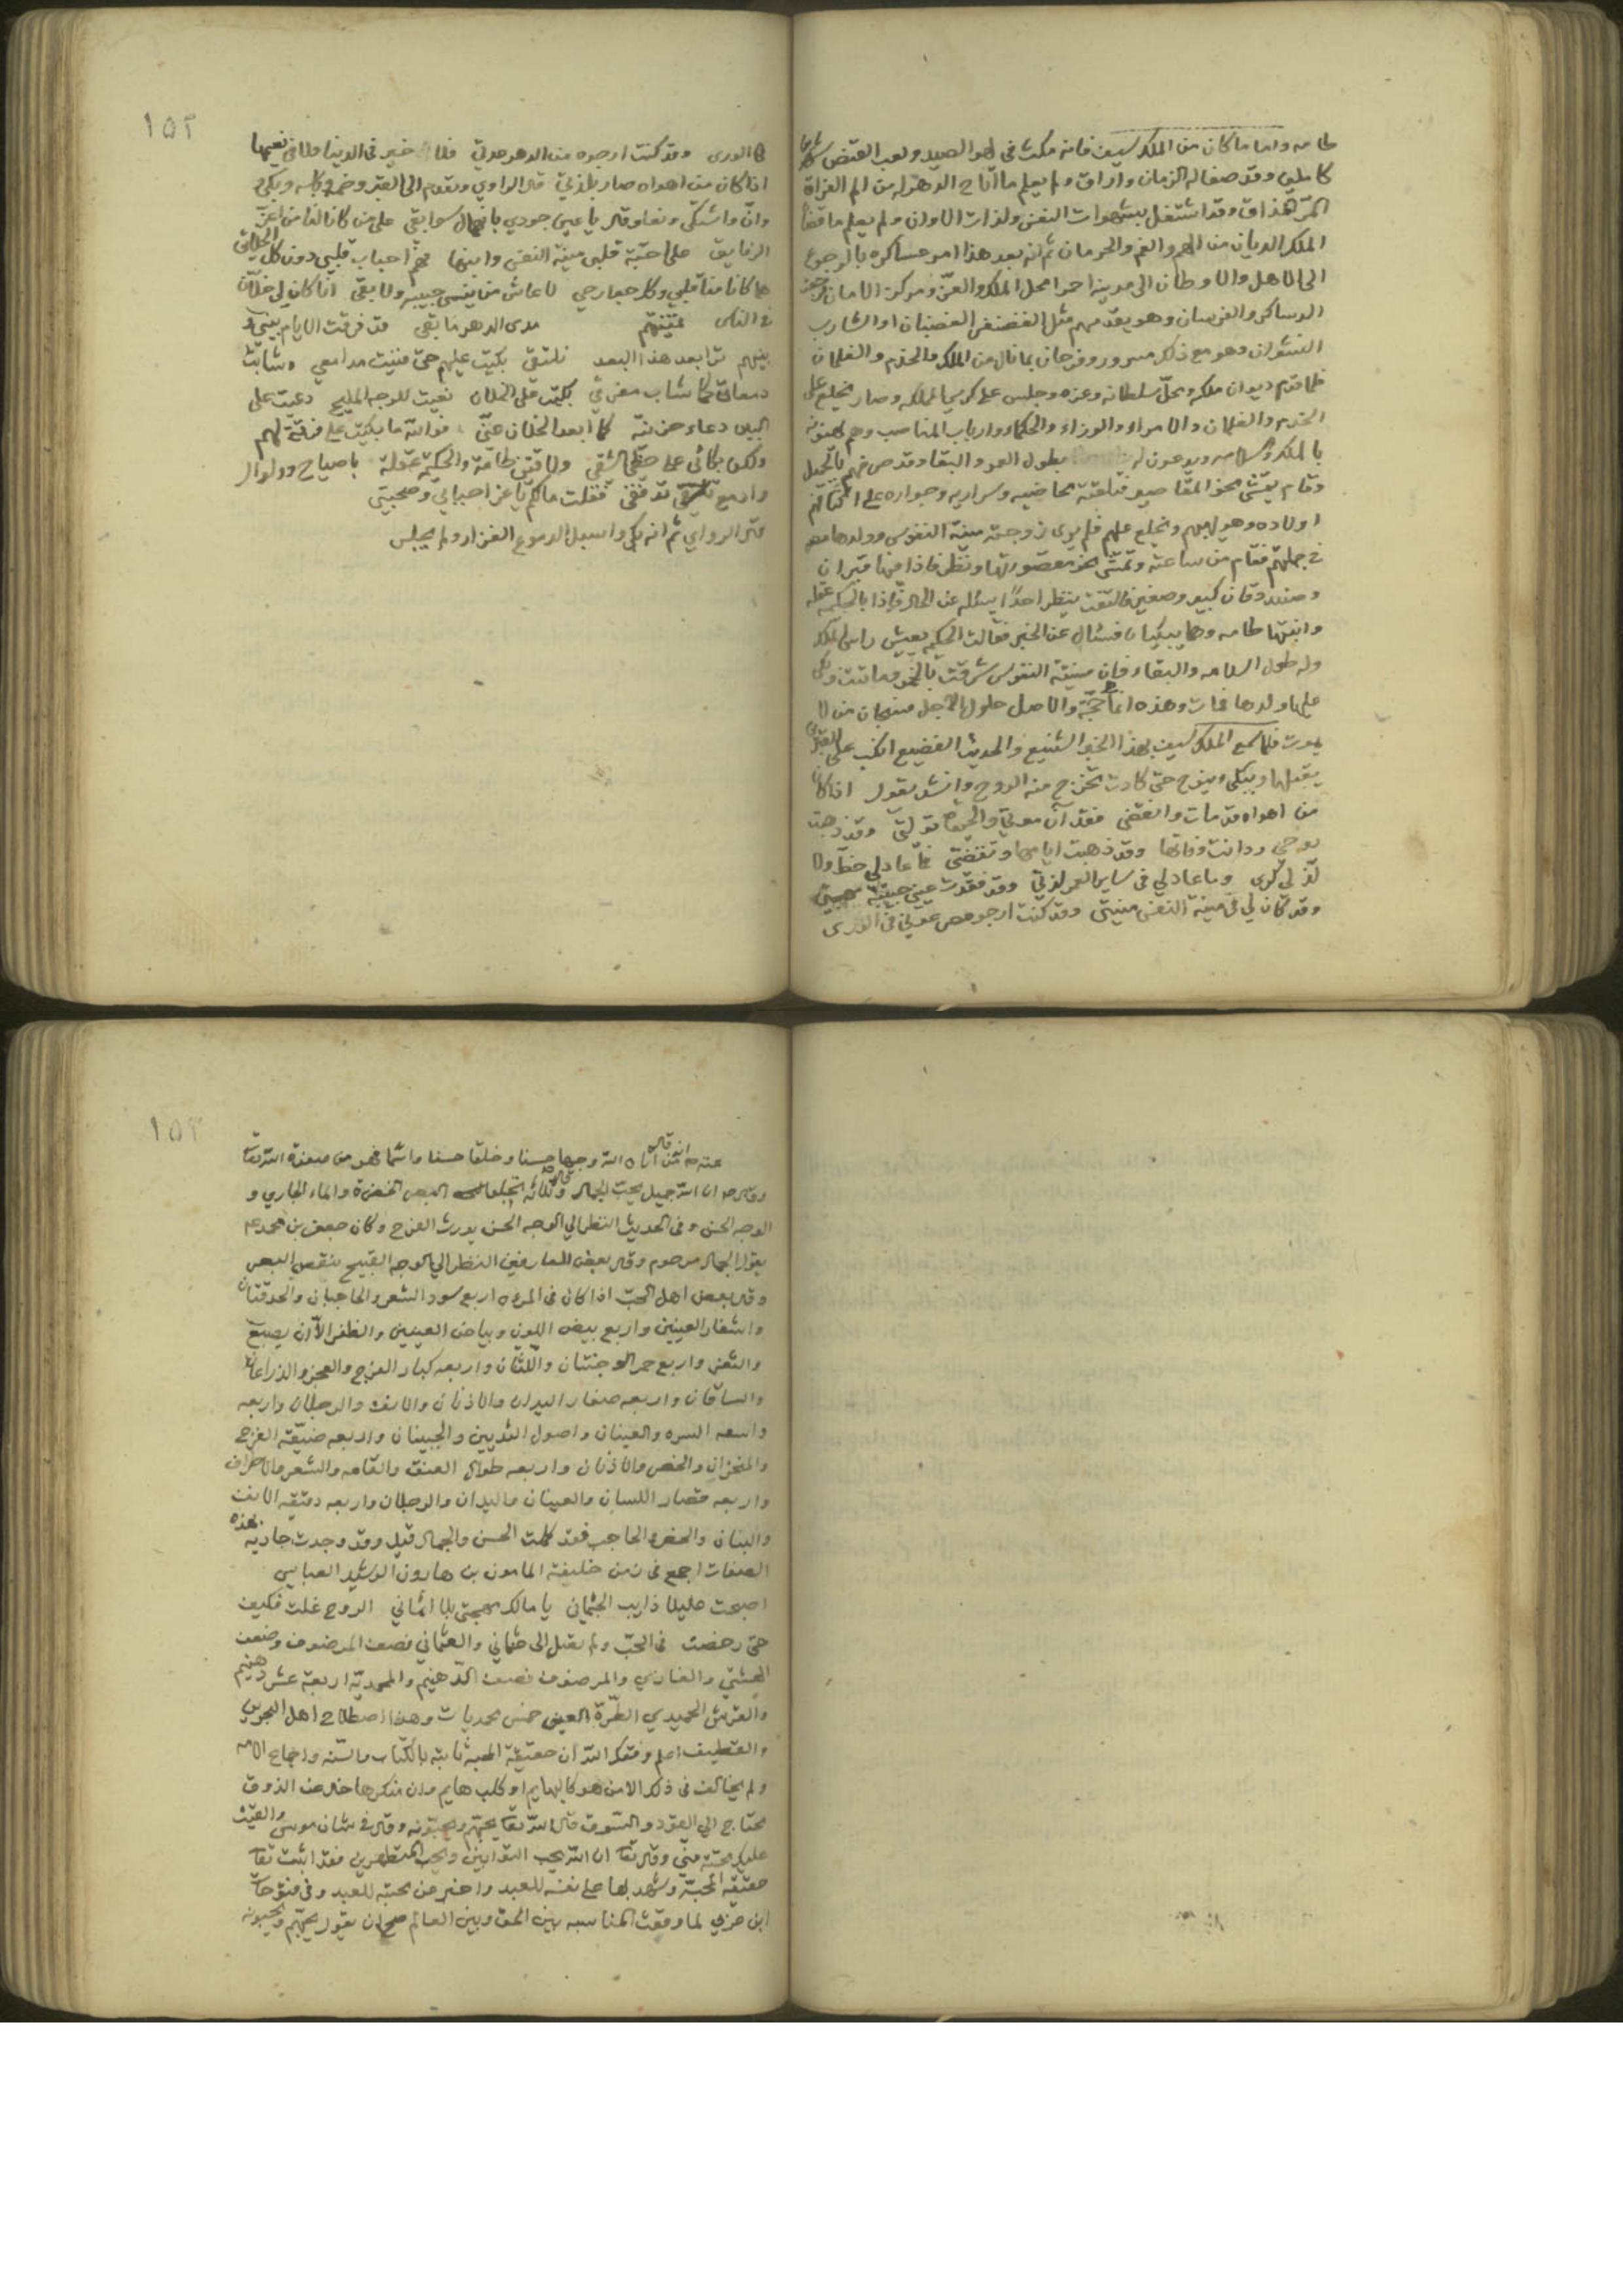 طامه واما ماكان من الملك سيف فانه مكث في لهو الصيد ولعب القنص شهرا
كاملين وقد صفا له الزمان وراق ولم يعلم ما اتاح الدهر له من الم الفراق
المر المذاق وقد اشتغل بشهوات النفس ولذات الاوان ولم يعلم ما قضا
الملك الديان من الهم والغم والحرمان ثم انه بعد هذا امر عساكره بالرجوع
الى الاهل والاوطان الى مدينة احرا محل الملك والعز ومركز الامان
الدساكر والفرسان وهو يقدمهم مثل الغضنفر الغضبان او الشارب
النشوان وهو مع ذلك مسرور وفرحان بما نال من الملك والخدم والغلمان
فلما قدم ديوان ملكه ومحل سلطانه وعزه وجلس على كرسي المملكه وصار يخلع على
الخدم والغلمان والامراء والوزراء والحكماء وارباب المناصب وهم يهنونه
بالملك والسلامه ويدعون له بطول العمر والبقا وقد صرفهم بالتحيل
وقام يمشي نحو المقاصير فتلقته محاضيه وسراريه وجواره على اكتافهم
اولاده وهو يخلع عليهم فلم يرى زوجته منية النفوس وولدها معه
في جملتهم فقام من ساعته وتمشى نحو مقصورتها ونظر فاذا فيها قبران
وصندوقان كبير وصغير فالتفت ينظر احدا يسئله عن الحال واذا بالحكيمه عقله
وابنتها طامه وهما يبكيان فسئال عن الخبر فقالت الحكيمه يعيش راس الملك
وله طول السلامه والبقاء فان منية النفوس شرقت بالخمر فماتت وبكى
عليها ولدها فمات وهذه انما حجة والاصل حلول الاجل فسبحان من لا
يموت فلما سمع الملك سيف بهذا الخبر الشنيع والحديث الفضيع انكب على القبر
يقبلها ويبكي وينوح حتى كادت تخرج منه الروح وانشد يقول اذا كان
من اهواه قد مات وانقضى فقد آن موتي والحيوة تولت وقد ذهبت
روحي ودانت وفاتها وقد ذهبت ايامها وتقضت فما عاد لي حظ ولا
لذ لي كرى وما عاد لي في ساير العمر لذتي وقد فقدت عيني حبيبة مهجتي
وقد كان لي في منية النفس منيتي وقد كنت ارجو مصر عوني في الورى
١٥٢
في الورى وقد كنت ارجوه من الدهر عدتي فلا خير في الدنيا ولا في نعيمها
اذا كان من اهواه صار بلذتي قال الراوي وتقدم الى القبر وضمه وقبله وبكى
وان واشتكى ونعا وقال يا عيني جودي بانهمال سوابقي على من كانا لنا من اعز
الرفايق على احبة قلبي منية النفس وابنها هم احباب قلبي دون كل الخلايق
هما كانا منا قلبي وكل جوارحي لا عاش من ينسى حبيبه ولا بقي انا كان لي خلان
في الناس غيبتهم مدى الدهر ما بقي قد فرقت الايام بيني و
بينهم ترا بعد هذا البعد نلتقي بكيت عليهم حتى فنيت مدامعي وشابت
دمعاتي كما شاب مفرقي بكيت على الخلان نعيت للوجه المليح دعيت على
البين دعاء حزينة كما ابعد الخلان عني فوالله ما بكيت على فرقة لهم
ولكن بكائي على حظي الشقي ولاقتني طامة والحكيمة عقلة بصياح وولوال
وادمع تدفقي فقلت مالكم يا عز احبابي وصحبتي
قال الراوي ثم انه بكى واسبل الدموع الغزار ولم يجلس
١٥٣
عنه ص انه قال من اتاه الله وجها حسنا وخلقا حسنا واسما فهو من صفوة الله تعا
وقال ص ان الله جميل يحب الجمال وقال ثلاثه تجلوا البصر الخضرة والماء الجاري و
الوجه الحسن وفي الحديث النظر الي الوجه الحسن يورث الفرح وكان جعفر بن محمد ع
يقول الجمال مرحوم وقال بعض العارفين النظر الي الوجه القبيح ينقص البصر
وقال بعض اهل الحب اذا كان في المرءه اربع سود الشعر والحاجبان والحدقتان
واشفار العينين واربع بيض اللون وبياض العينين والظفر الآن يصبغ
والثغر واربع حمر الوجنتان واللثتان واربعه كبار الفرج والعجز والذراعان
والساقان واربعه صغار اليدان والاذنان والانف والرجلان واربعه
واسعه السره والعينان واصول الثديين والجبينان واربعه ضيقه الفرج
والمنخران والخصر والاذنان واربعه طوال العنق والقامه والشعر والاطراف
واربعه قصار اللسان والعينان واليدان والرجلان واربعه دقيقه الانف
والبنان والخصر والحاجب فقد كملت الحسن والجمال قيل وقد وجدت جاريه بهذه
الصفات اجمع في زمن خليفة المامون بن هارون الرشيد العباسي
اصبحت عليلا ذايب الجثماني يا مالك مهجتي بلا اثماني الروح غلت فكيف
حتى رخصت في الحب ولم يقبل الى عثماني والعثماني نصف المرضوف وضعف
العشتي والغازي والمرصوف نصف الدهنيم والمحمديه اربعة عشر دهنيم
والقرش الحميدي الطرة العين خمس محمديات وهذا اصطلاح اهل البحرين
والقطيف اعلم وفقك الله ان حقيقة المحبة ثابته بالكتاب والسنه واجماع الامه
ولم يخالف في ذلك الا من هو كالبهايم او كلب هايم وان منكرها خال عن الذوق
محتاج الى القود والسوق قال الله تعا يحبهم ويحبونه وقال في شان موسى والقيت
عليك محبة مني وقال تعا ان الله يحب التوابين ويحب المتطهرين فقد اثبت تعا
حقيقة المحبة وشهد بها على نفسه للعبد واخبر عن محبته للعبد وفي فتوحات
ابن عربي لما وقعت المناسبه بين الحق وبين العالم صح ان يقول يحبهم ويحبونه